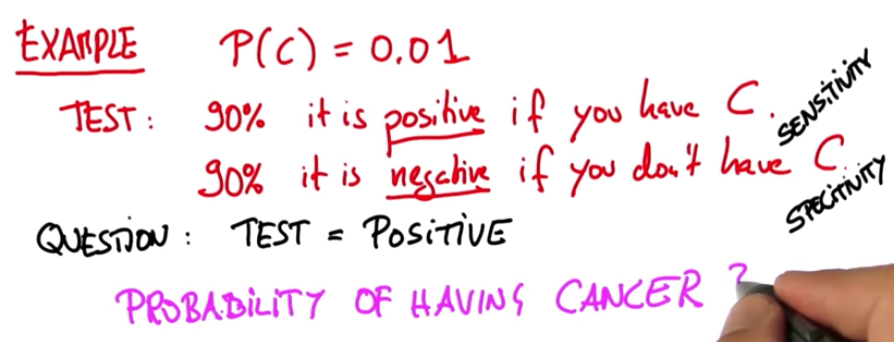 EXAMPLE P(C) = 0.01
TEST: 90% it is positive if you have C. SENSITIVITY
90% it is negative if you don't have C. SPECITIVITY
QUESTION: TEST = POSITIVE
PROBABILITY OF HAVING CANCER ?